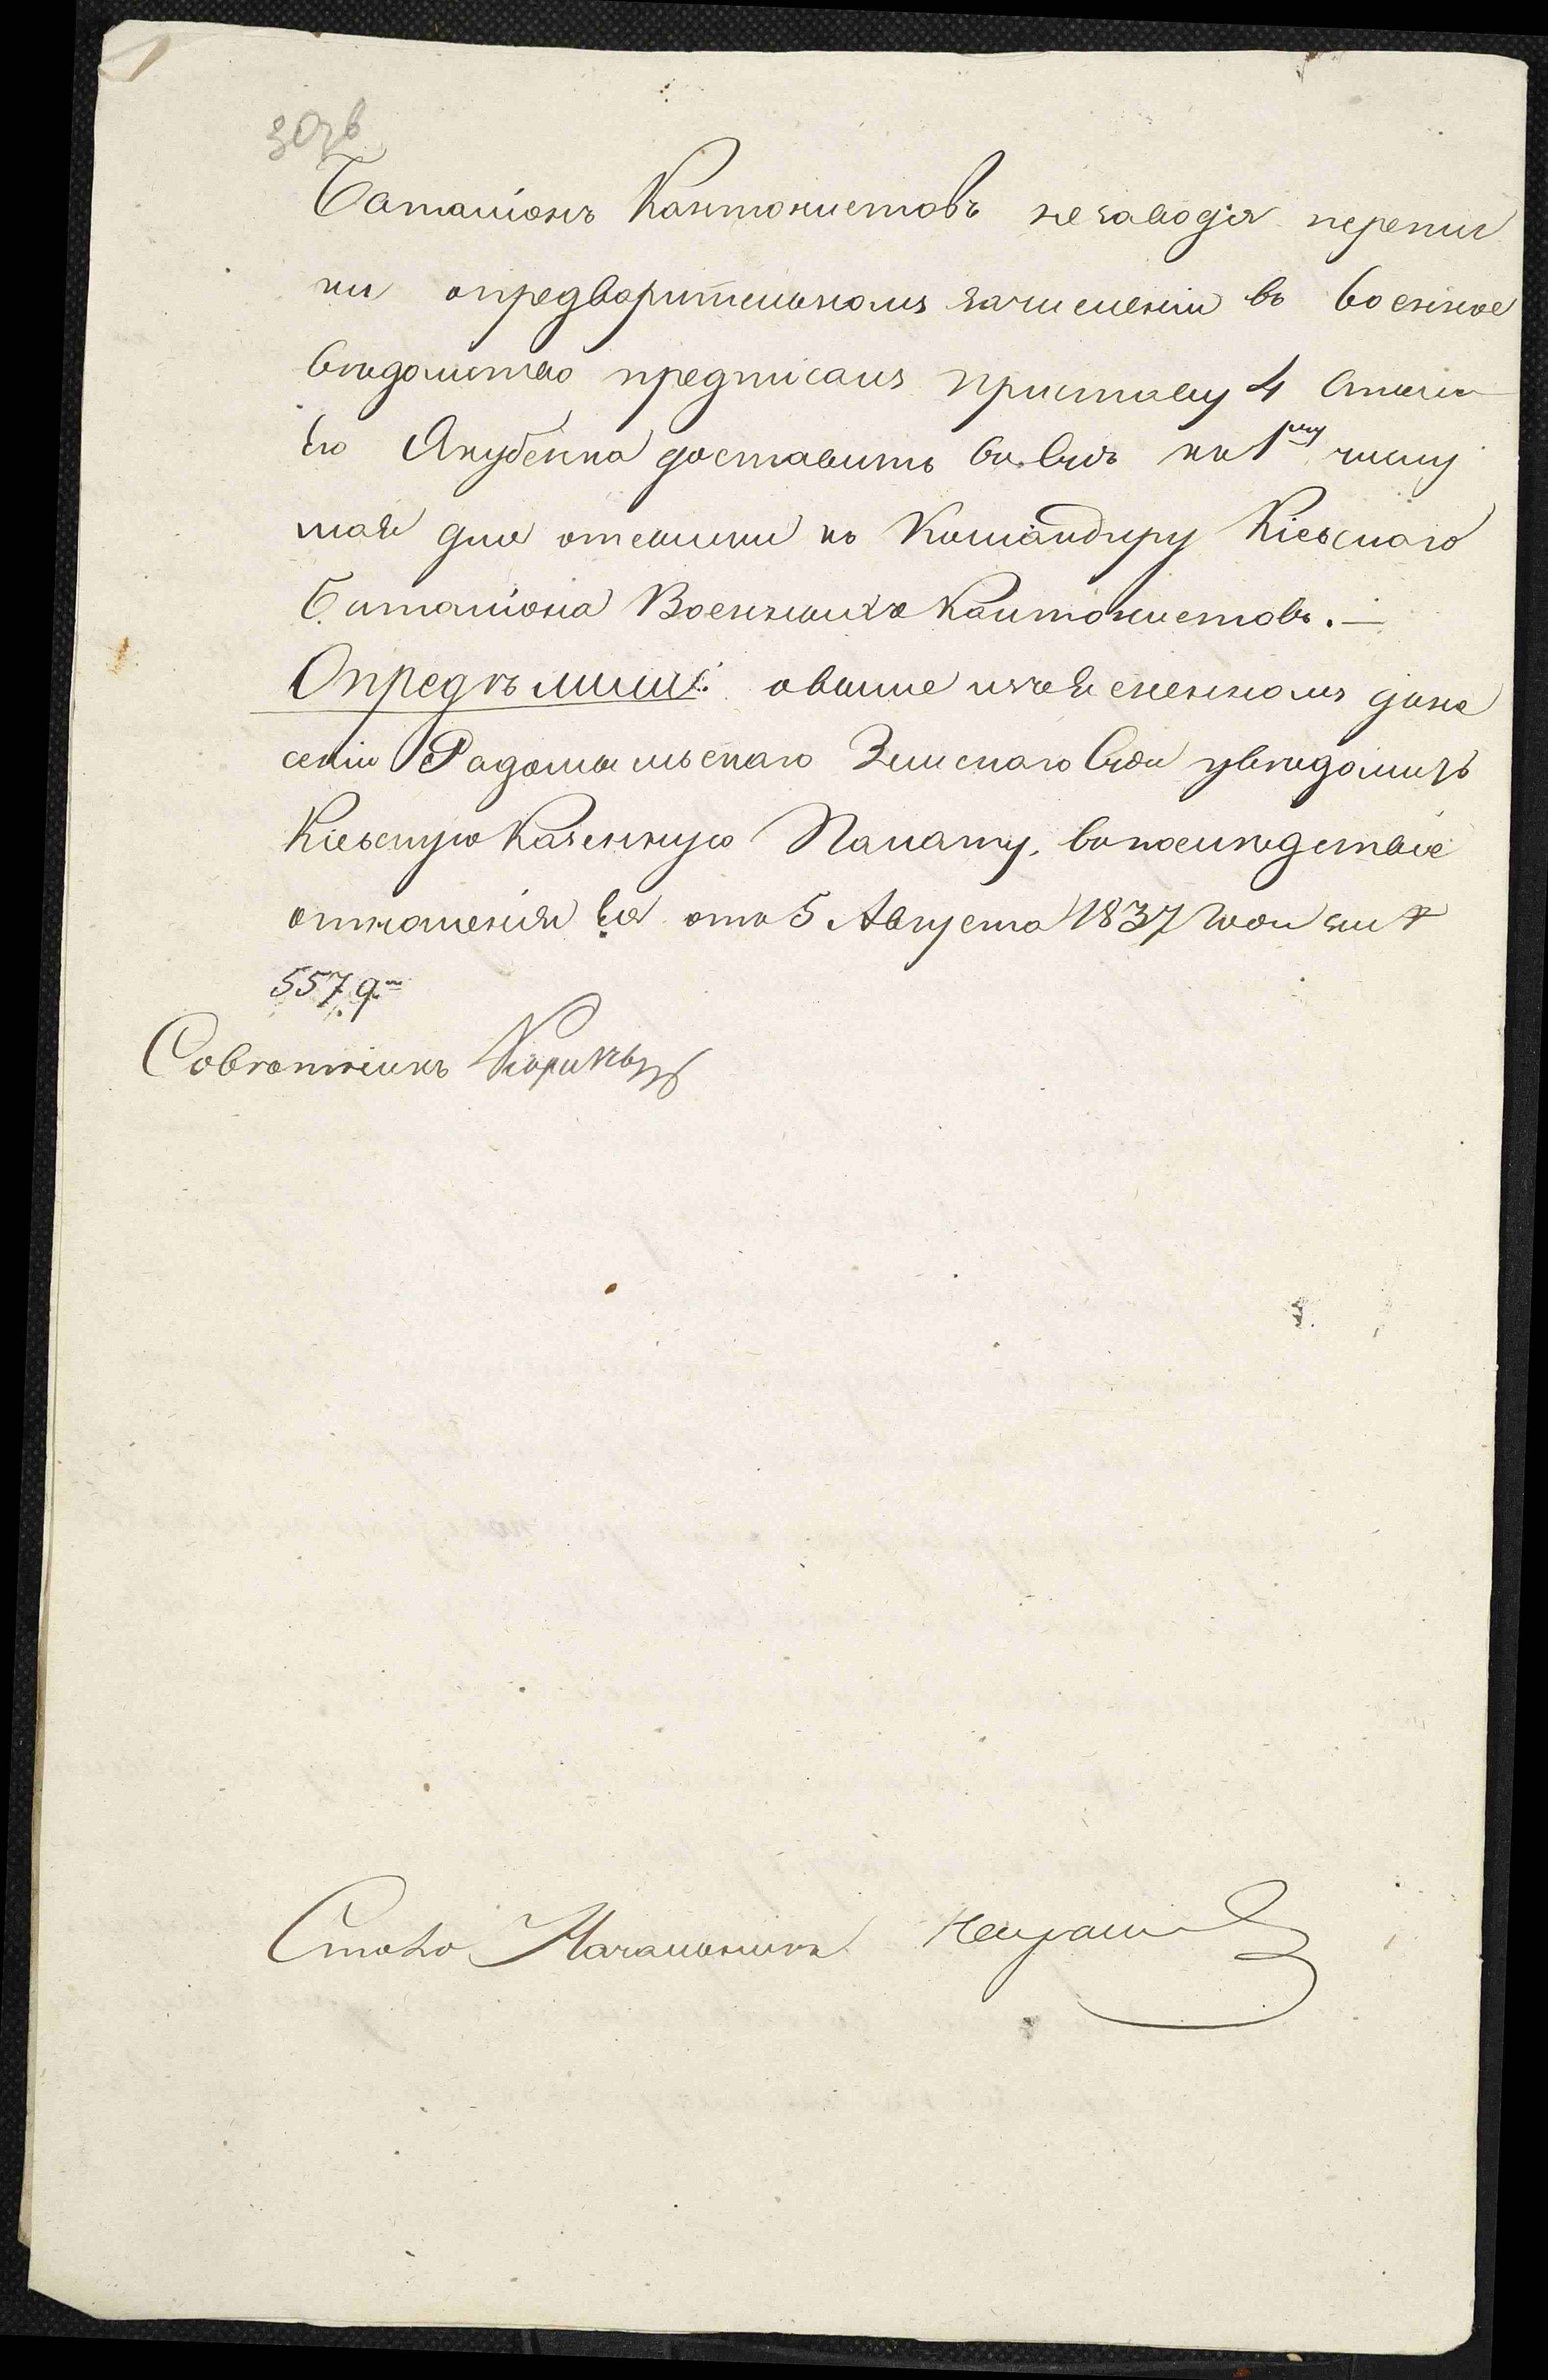 30зв
Баталіонъ Кантонистовъ незаводя перепис
ки опредварительномъ зачисленіи въ военное
вѣдомство предписалъ приставу 4 Стана
Его Якубенка доставить въ Судъ къ 1му числу
мая для отсылки къ Командиру Кіевскаго
Баталіона Военныхъ Кантонистовъ. —
Опредѣлили: овыше изъясненномъ доне
сеніи Радомысльскаго Земскаго Суда увѣдомить
Кіевскую Казенную Палату, въпослѣдствіе
отношенія Ея отъ 5 Августа 1837 года за №
5579.
Совѣтникъ
Столо Начальникъ